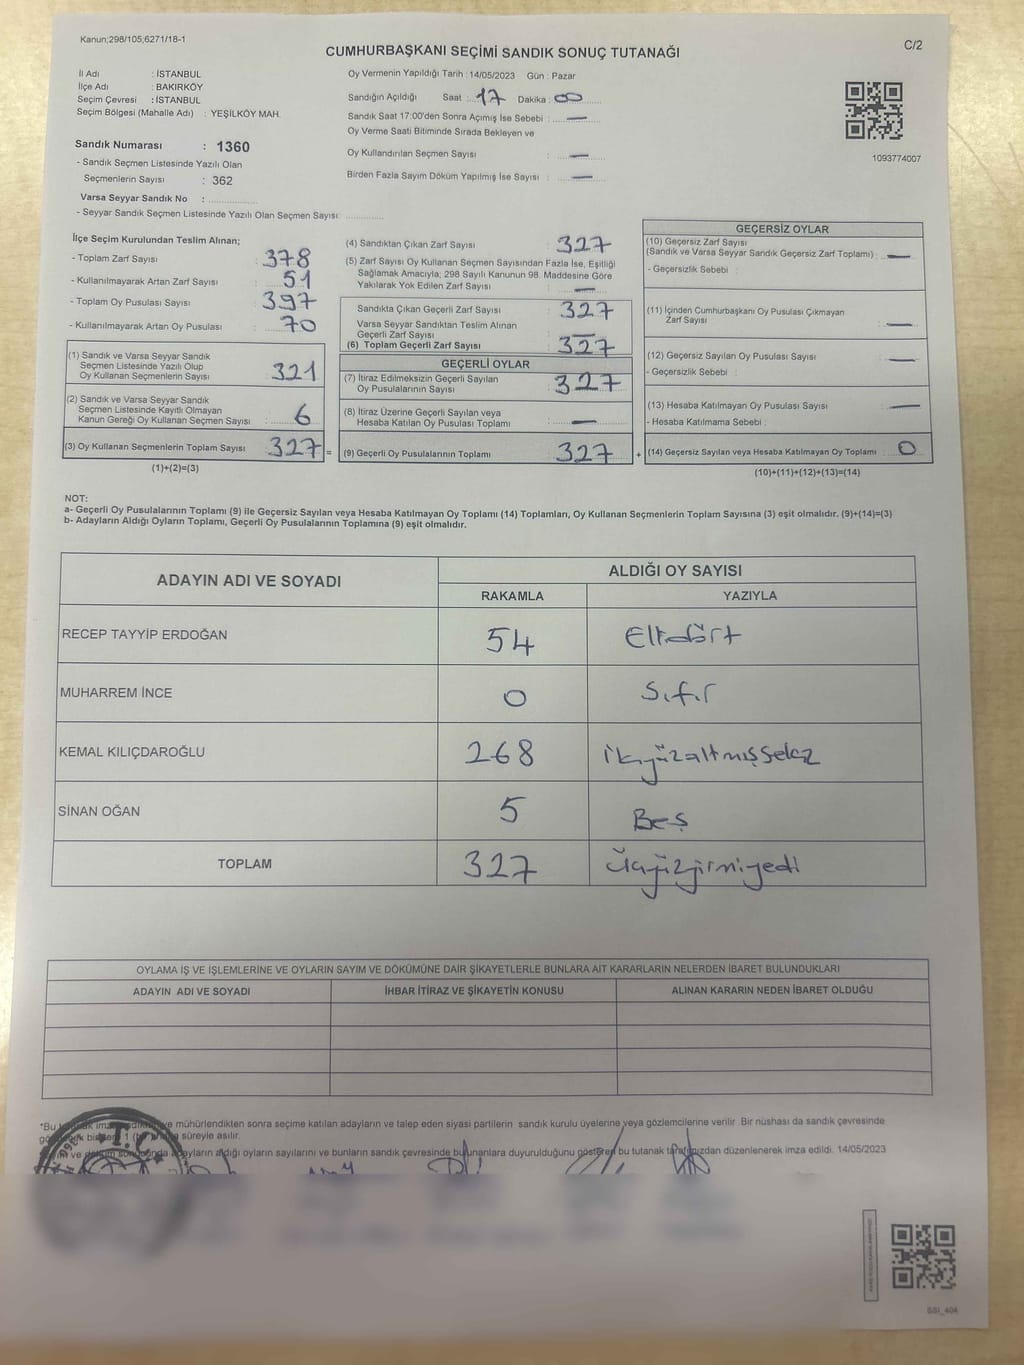 Kanun;298/105;6271/18-1
C/2
CUMHURBAŞKANI SEÇİMİ SANDIK SONUÇ TUTANAĞI
İl Adı : İSTANBUL
İlçe Adı : BAKIRKÖY
Seçim Çevresi : İSTANBUL
Seçim Bölgesi (Mahalle Adı) : YEŞİLKÖY MAH.
Sandık Numarası : 1360
- Sandık Seçmen Listesinde Yazılı Olan
Seçmenlerin Sayısı : 362
Varsa Seyyar Sandık No :
- Seyyar Sandık Seçmen Listesinde Yazılı Olan Seçmen Sayısı:
Oy Vermenin Yapıldığı Tarih : 14/05/2023 Gün : Pazar
Sandığın Açıldığı Saat : 17 Dakika : 00
Sandık Saat 17:00'den Sonra Açımış İse Sebebi : —
Oy Verme Saati Bitiminde Sırada Bekleyen ve
Oy Kullandırılan Seçmen Sayısı : —
Birden Fazla Sayım Döküm Yapılmış İse Sayısı : —
1093774007
İlçe Seçim Kurulundan Teslim Alınan;
- Toplam Zarf Sayısı : 378
- Kullanılmayarak Artan Zarf Sayısı : 51
- Toplam Oy Pusulası Sayısı : 397
- Kullanılmayarak Artan Oy Pusulası : 70
(1) Sandık ve Varsa Seyyar Sandık
Seçmen Listesinde Yazılı Olup
Oy Kullanan Seçmenlerin Sayısı : 321
(2) Sandık ve Varsa Seyyar Sandık
Seçmen Listesinde Kayıtlı Olmayan
Kanun Gereği Oy Kullanan Seçmen Sayısı : 6
(3) Oy Kullanan Seçmenlerin Toplam Sayısı : 327 =
(1)+(2)=(3)
(4) Sandıktan Çıkan Zarf Sayısı : 327
(5) Zarf Sayısı Oy Kullanan Seçmen Sayısından Fazla İse, Eşitliği
Sağlamak Amacıyla; 298 Sayılı Kanunun 98. Maddesine Göre
Yakılarak Yok Edilen Zarf Sayısı : —
Sandıkta Çıkan Geçerli Zarf Sayısı : 327
Varsa Seyyar Sandıktan Teslim Alınan
Geçerli Zarf Sayısı : —
(6) Toplam Geçerli Zarf Sayısı : 327
GEÇERLİ OYLAR
(7) İtiraz Edilmeksizin Geçerli Sayılan
Oy Pusulalarının Sayısı : 327
(8) İtiraz Üzerine Geçerli Sayılan veya
Hesaba Katılan Oy Pusulası Toplamı : —
(9) Geçerli Oy Pusulalarının Toplamı : 327 +
GEÇERSİZ OYLAR
(10) Geçersiz Zarf Sayısı
(Sandık ve Varsa Seyyar Sandık Geçersiz Zarf Toplamı) : —
- Geçersizlik Sebebi :
(11) İçinden Cumhurbaşkanı Oy Pusulası Çıkmayan
Zarf Sayısı : —
(12) Geçersiz Sayılan Oy Pusulası Sayısı : —
- Geçersizlik Sebebi :
(13) Hesaba Katılmayan Oy Pusulası Sayısı : —
- Hesaba Katılmama Sebebi :
(14) Geçersiz Sayılan veya Hesaba Katılmayan Oy Toplamı : 0
(10)+(11)+(12)+(13)=(14)
NOT:
a- Geçerli Oy Pusulalarının Toplamı (9) ile Geçersiz Sayılan veya Hesaba Katılmayan Oy Toplamı (14) Toplamları, Oy Kullanan Seçmenlerin Toplam Sayısına (3) eşit olmalıdır. (9)+(14)=(3)
b- Adayların Aldığı Oyların Toplamı, Geçerli Oy Pusulalarının Toplamına (9) eşit olmalıdır.
ADAYIN ADI VE SOYADI ALDIĞI OY SAYISI
RAKAMLA YAZIYLA
RECEP TAYYİP ERDOĞAN 54 Ellidört
MUHARREM İNCE 0 Sıfır
KEMAL KILIÇDAROĞLU 268 ikiyüzaltmışsekiz
SİNAN OĞAN 5 Beş
TOPLAM 327 üçyüzyirmiyedi
OYLAMA İŞ VE İŞLEMLERİNE VE OYLARIN SAYIM VE DÖKÜMÜNE DAİR ŞİKAYETLERLE BUNLARA AİT KARARLARIN NELERDEN İBARET BULUNDUKLARI
ADAYIN ADI VE SOYADI İHBAR İTİRAZ VE ŞİKAYETİN KONUSU ALINAN KARARIN NEDEN İBARET OLDUĞU
*Bu mühürlendikten sonra seçime katılan adayların ve talep eden siyasi partilerin sandık kurulu üyelerine veya gözlemcilerine verilir .Bir nüshası da sandık çevresinde
süreyle asılır.
adayların aldığı oyların sayılarını ve bunların sandık çevresinde bulunanlara duyurulduğunu gösteren bu tutanak tarafımızdan düzenlenerek imza edildi. 14/05/2023
T.C.
SSI_404